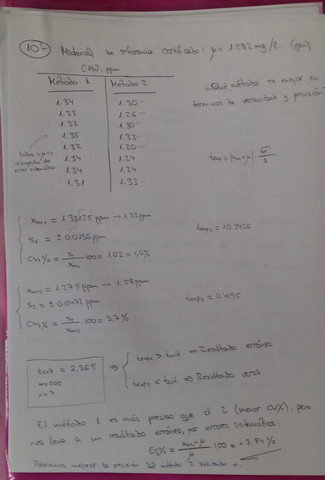 10- Material de referencia certificado: μ = 1.282 mg/l (ppm)
[Pb], ppm
Método 1 Método 2
1.34 1.30
1.33 1.26
1.32 1.30
1.35 1.33
1.32 1.20
1.34 1.24
1.34 1.24
1.31 1.33
¿Qué método es mejor en
términos de veracidad y precisión?
texp = |xm - μ| √n / s
xm1 = 1.33125 ppm → 1.33 ppm
s1 = ± 0.0136 ppm
CV1% = s1/xm · 100 = 1.02 = 1,0%
texp1 = 10.2426
xm2 = 1.275 ppm → 1.28 ppm
s2 = ± 0.0472 ppm
CV2% = s2/xm · 100 = 3.7%
texp2 = 0.4195
tcrit = 2.365
α=0.05
ν=7
⇒ texp1 > tcrit ⇒ Resultado erróneo
texp2 < tcrit ⇒ Resultado veraz
El método 1 es más preciso que el 2 (menor CV%), pero
nos lleva a un resultado erróneo, por errores sistemáticos:
E1% = xm1 - μ / μ · 100 = +3,84%
Podríamos mejorar la precisión del método 2 subiendo n.